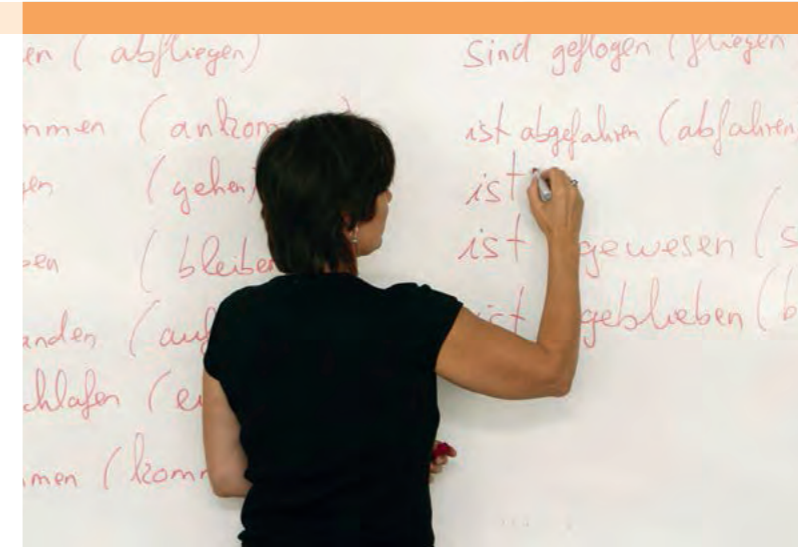 en (abfliegen)
mmen (ankom
en (gehen)
ben (bleiben
anden (auf
chlafen (ei
mmen (komm
sind geflogen (fliegen
ist abgefahren (abfahren
ist
ist gewesen (s
ist geblieben (b